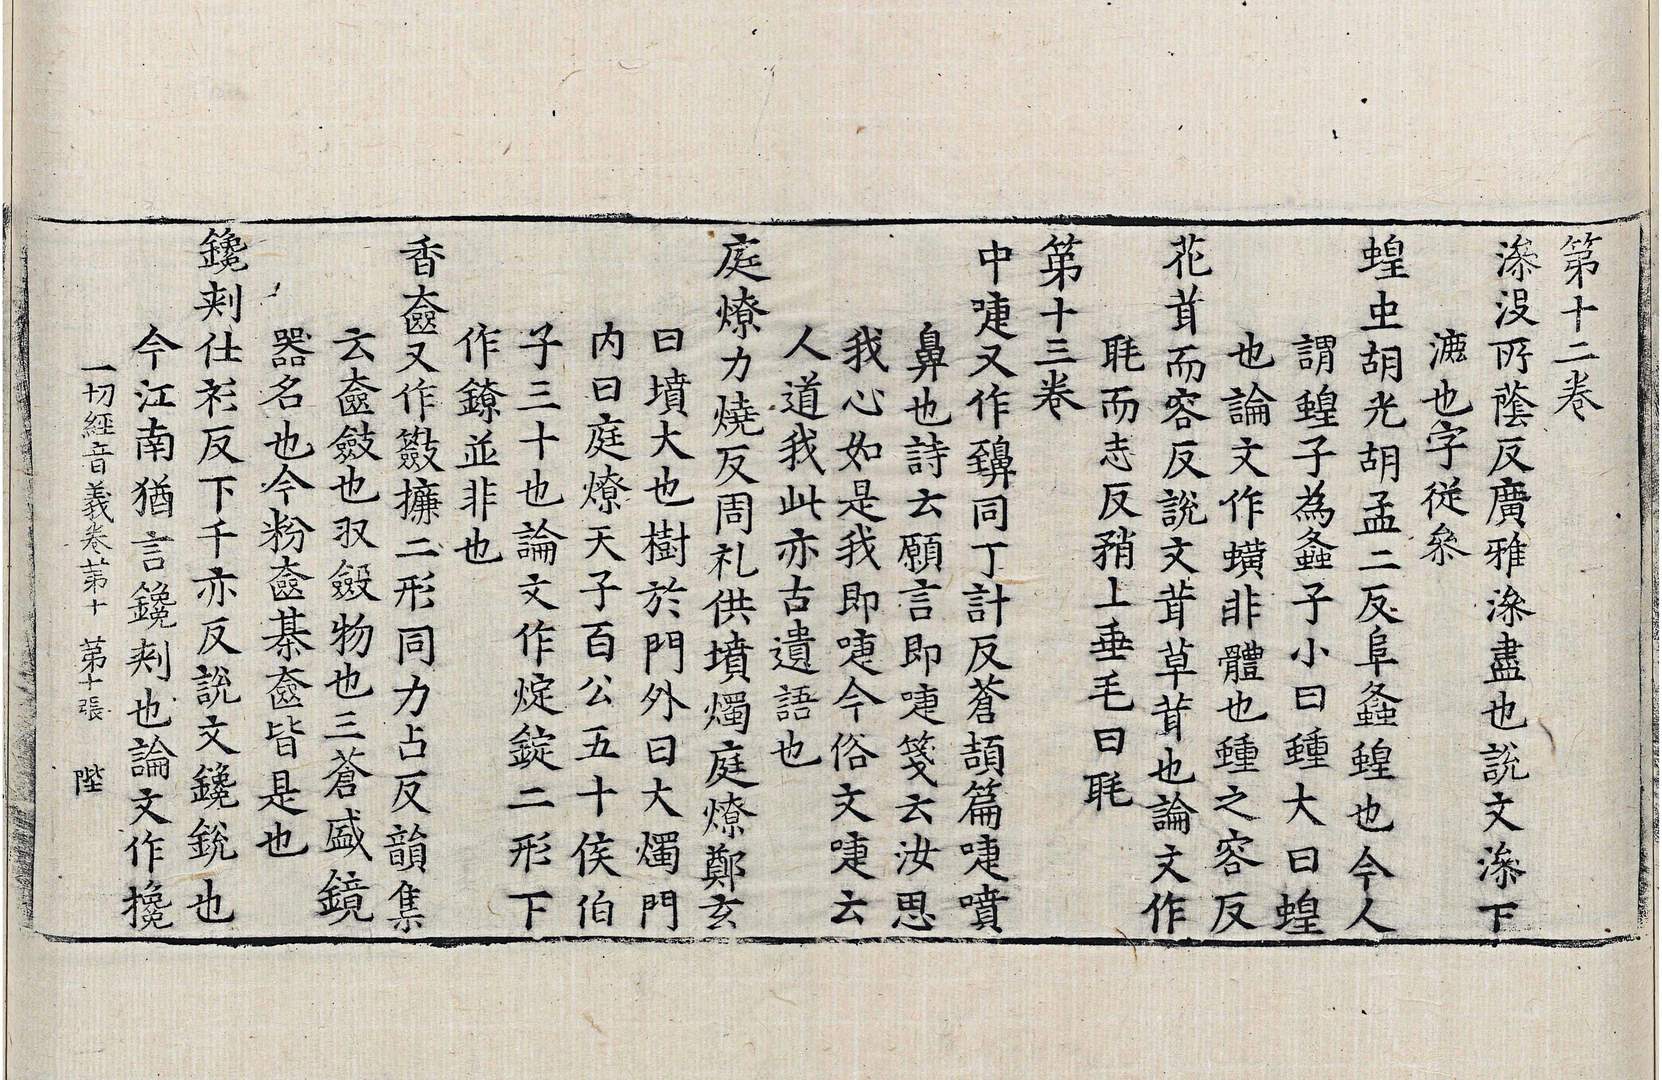 第十二卷
滲没所蔭反廣雅滲盡也說文滲下
漉也字従叅
蝗虫胡光胡孟二反阜螽蝗也今人
謂蝗子為螽子小曰蝩大曰蝗
也論文作蟥非體也蝩之容反
花茸而容反說文茸草茸也論文作
毦而志反矟上垂毛曰毦
第十三卷
中啑又作䶍同丁計反蒼頡篇啑噴
鼻也詩云願言即啑箋云汝思
我心如是我即啑今俗文啑云
人道我此亦古遺語也
庭燎力燒反周礼供墳燭庭燎鄭玄
曰墳大也樹於門外曰大燭門
内曰庭燎天子百公五十侯伯
子三十也論文作烶錠二形下
作鐐並非也
香奩又作籢㩮二形同力占反韻集
云奩斂也収斂物也三蒼盛鏡
器名也今粉奩棊奩皆是也
鑱刾仕衫反下千亦反說文鑱銳也
今江南猶言鑱刾也論文作攙
一切經音義卷苐十 苐十張 陛